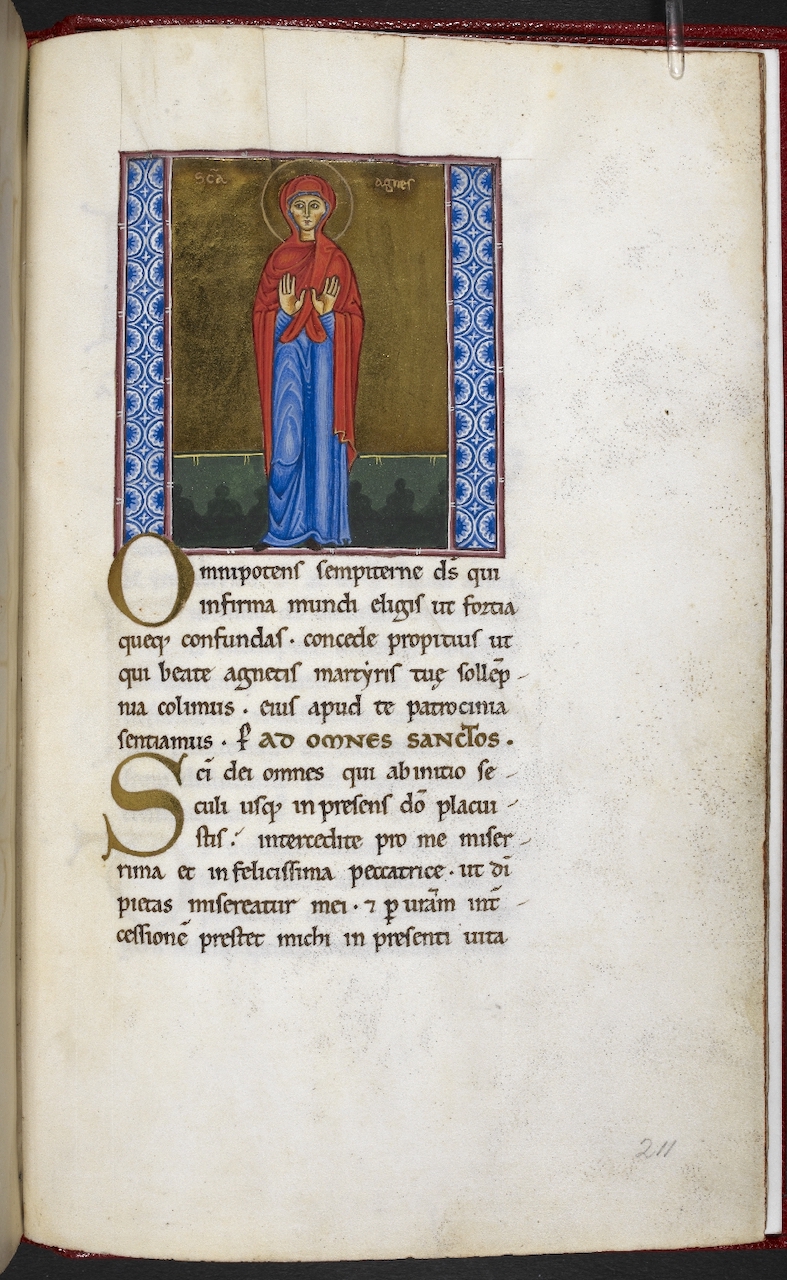 Sca agnes
Omnipotens sempiterne ds̄ qui
infirma mundi eligis ut fortia
queq; confundas · concede propitius ut
qui beate agnetis martẏris tuę sollēp-
nia colimus · eius apud te patrocinia
sentiamus · P̄ AD OMNES SANCTOS ·
Scī dei omnes qui ab initio se-
culi usq; in presens dō placui-
stis : intercedite pro me miser-
rima et infelicissima peccatrice · ut dī
pietas misereatur mei · ⁊ ꝑ urām int̄-
cessionē prestet michi in presenti uita
211